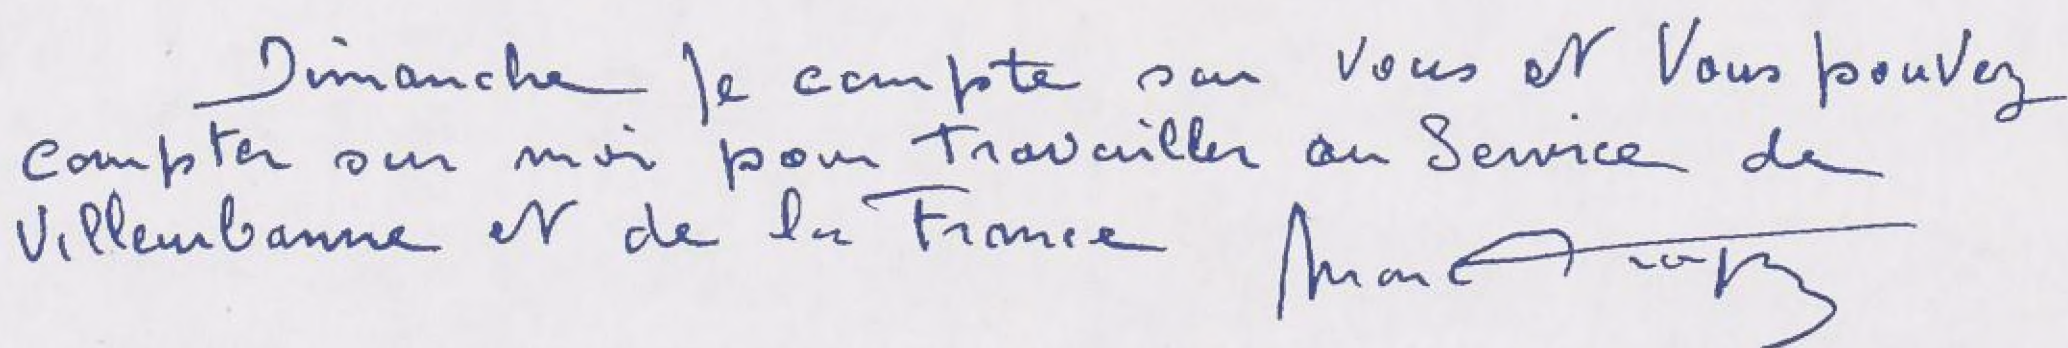 Dimanche Je compte sur vous et Vous pouvez
compter sur moi pour Travailler au Service de
Villeurbanne et de la France Marc